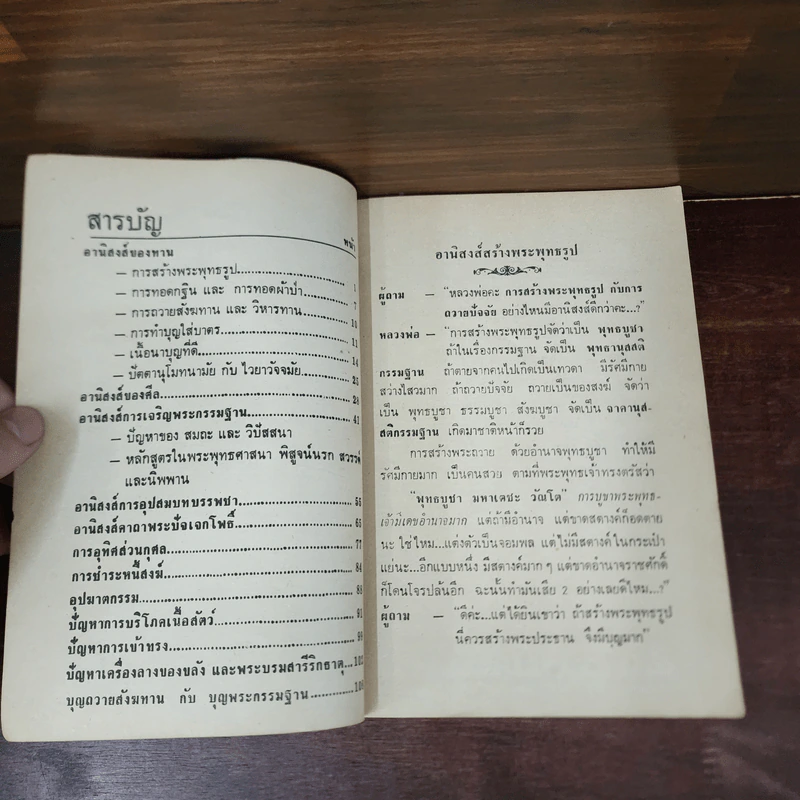 สารบัญ
หน้า
อานิสงส์ของทาน
— การสร้างพระพุทธรูป.................... 1
— การทอดกฐิน และ การทอดผ้าป่า .... 7
— การถวายสังฆทาน และ วิหารทาน .... 10
— การทำบุญใส่บาตร.................... 11
— เนื้อนาบุญที่ดี.................... 14
— ปัตตานุโมทนามัย กับ ไวยาวัจจมัย.... 25
อานิสงส์ของศีล.................... 28
อานิสงส์การเจริญพระกรรมฐาน.................... 41
— ปัญหาของ สมถะ และ วิปัสสนา
— หลักสูตรในพระพุทธศาสนา พิสูจน์นรก สวรรค์
และนิพพาน
อานิสงส์การอุปสมบทบรรพชา.................... 55
อานิสงส์คาถาพระปัจเจกโพธิ์.................... 68
การอุทิศส่วนกุศล.................... 77
การชำระหนี้สงฆ์.................... 84
อุปฆาตกรรม.................... 88
ปัญหาการบริโภคเนื้อสัตว์.................... 91
ปัญหาการเข้าทรง....................
ปัญหาเครื่องลางของขลัง และพระบรมสารีริกธาตุ...102
บุญถวายสังฆทาน กับ บุญพระกรรมฐาน..........
อานิสงส์สร้างพระพุทธรูป
ผู้ถาม — "หลวงพ่อคะ การสร้างพระพุทธรูป กับการ
ถวายปัจจัย อย่างไหนมีอานิสงส์ดีกว่าคะ...?"
หลวงพ่อ — "การสร้างพระพุทธรูปจัดว่าเป็น พุทธบูชา
ถ้าในเรื่องกรรมฐาน จัดเป็น พุทธานุสสติ
กรรมฐาน ถ้าตายจากคนไปเกิดเป็นเทวดา มีรัศมีกาย
สว่างไสวมาก ถ้าถวายปัจจัย ถวายเป็นของสงฆ์ จัดว่า
เป็น พุทธบูชา ธรรมบูชา สังฆบูชา จัดเป็น จาคานุส-
สติกรรมฐาน เกิดมาชาติหน้าก็รวย
การสร้างพระถวาย ด้วยอำนาจพุทธบูชา ทำให้มี
รัศมีกายมาก เป็นคนสวย ตามที่พระพุทธเจ้าทรงตรัสว่า
"พุทธบูชา มหาเตชะ วัณโต" การบูชาพระพุทธ-
เจ้ามีเดชอำนาจมาก แต่ถ้ามีอำนาจ แต่ขาดสตางค์ก็อดตาย
นะ ใช่ไหม...แต่งตัวเป็นจอมพล แต่ไม่มีสตางค์ในกระเป๋า
แย่นะ...อีกแบบหนึ่ง มีสตางค์มาก ๆ แต่ขาดอำนาจราชศักดิ์
ก็โดนโจรปล้นอีก ฉะนั้นทำมันเสีย 2 อย่างเลยดีไหม...?"
ผู้ถาม — "ดีค่ะ...แต่ได้ยินเขาว่า ถ้าสร้างพระพุทธรูป
นี่ควรสร้างพระประธาน จึงมีบุญมาก"